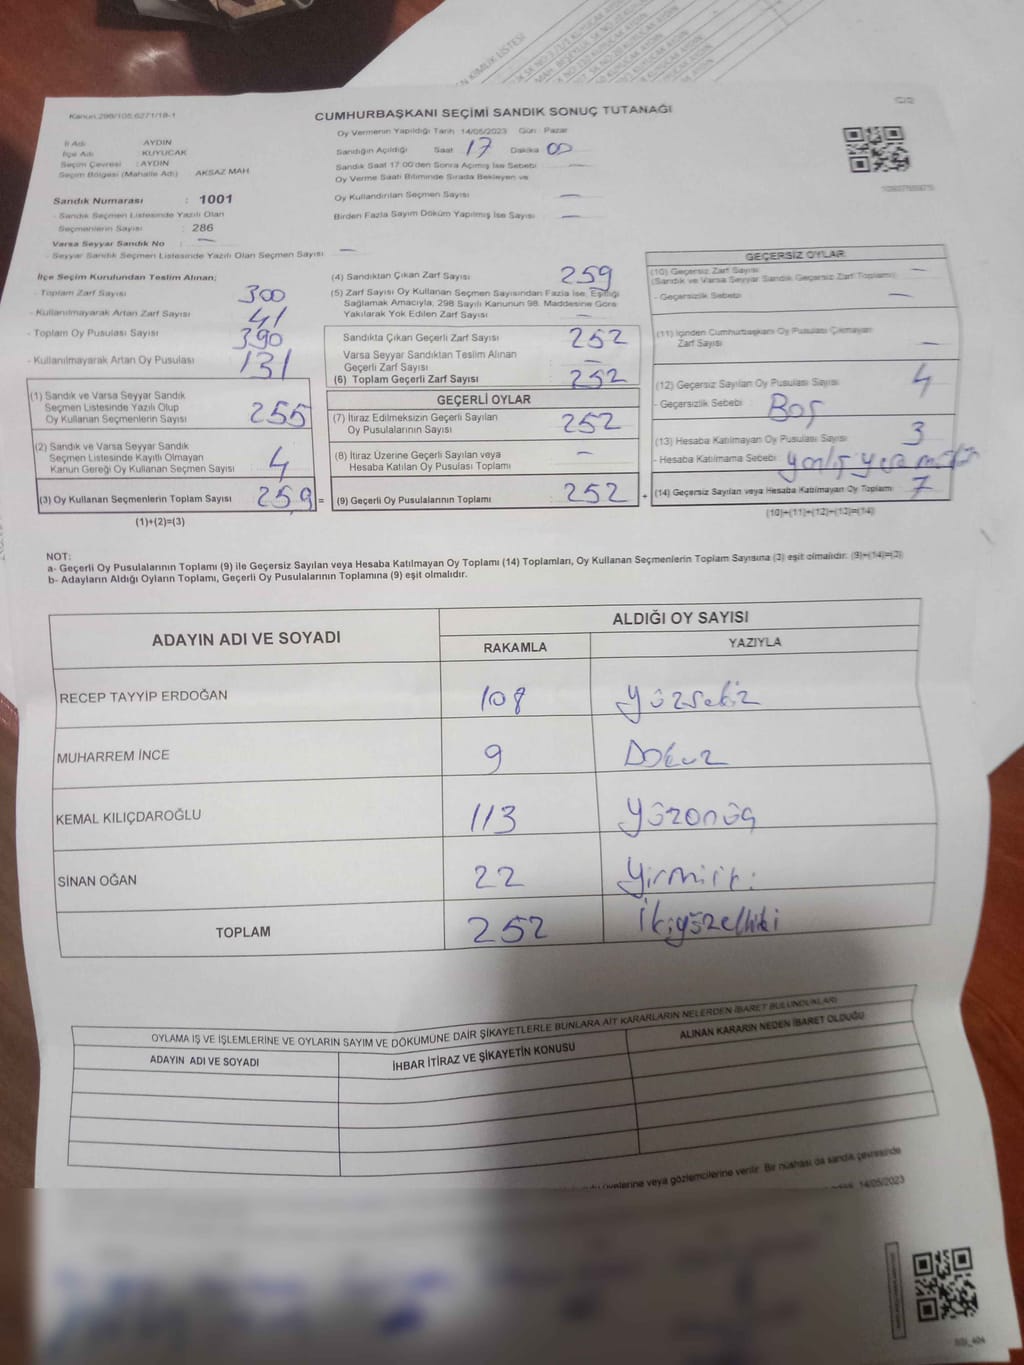 Kanun.298/105,6271/18-1
CUMHURBAŞKANI SEÇİMİ SANDIK SONUÇ TUTANAĞI
Oy Vermenin Yapıldığı Tarih : 14/05/2023 Gün : Pazar
İl Adı : AYDIN
İlçe Adı : KUYUCAK
Seçim Çevresi : AYDIN
Seçim Bölgesi (Mahalle Adı) AKSAZ MAH
Sandığın Açıldığı Saat 17 Dakika 00
Sandık Saat 17:00'den Sonra Açılmış İse Sebebi —
Oy Verme Saati Bitiminde Sırada Bekleyen ve
Oy Kullandırılan Seçmen Sayısı —
Birden Fazla Sayım Döküm Yapılmış İse Sayısı —
Sandık Numarası : 1001
- Sandık Seçmen Listesinde Yazılı Olan
Seçmenlerin Sayısı : 286
Varsa Seyyar Sandık No : —
- Seyyar Sandık Seçmen Listesinde Yazılı Olan Seçmen Sayısı —
İlçe Seçim Kurulundan Teslim Alınan;
- Toplam Zarf Sayısı 300
- Kullanılmayarak Artan Zarf Sayısı 41
- Toplam Oy Pusulası Sayısı 390
- Kullanılmayarak Artan Oy Pusulası 131
(1) Sandık ve Varsa Seyyar Sandık
Seçmen Listesinde Yazılı Olup
Oy Kullanan Seçmenlerin Sayısı 255
(2) Sandık ve Varsa Seyyar Sandık
Seçmen Listesinde Kayıtlı Olmayan
Kanun Gereği Oy Kullanan Seçmen Sayısı 4
(3) Oy Kullanan Seçmenlerin Toplam Sayısı 259 =
(1)+(2)=(3)
(4) Sandıktan Çıkan Zarf Sayısı 259
(5) Zarf Sayısı Oy Kullanan Seçmen Sayısından Fazla İse, Eşitliği
Sağlamak Amacıyla, 298 Sayılı Kanunun 98. Maddesine Göre
Yakılarak Yok Edilen Zarf Sayısı —
Sandıkta Çıkan Geçerli Zarf Sayısı 252
Varsa Seyyar Sandıktan Teslim Alınan
Geçerli Zarf Sayısı —
(6) Toplam Geçerli Zarf Sayısı 252
GEÇERLİ OYLAR
(7) İtiraz Edilmeksizin Geçerli Sayılan
Oy Pusulalarının Sayısı 252
(8) İtiraz Üzerine Geçerli Sayılan veya
Hesaba Katılan Oy Pusulası Toplamı —
(9) Geçerli Oy Pusulalarının Toplamı 252 +
GEÇERSİZ OYLAR
(10) Geçersiz Zarf Sayısı —
(Sandık ve Varsa Seyyar Sandık Geçersiz Zarf Toplamı)
- Geçersizlik Sebebi : —
(11) İçinden Cumhurbaşkanı Oy Pusulası Çıkmayan
Zarf Sayısı —
(12) Geçersiz Sayılan Oy Pusulası Sayısı 4
- Geçersizlik Sebebi : Boş
(13) Hesaba Katılmayan Oy Pusulası Sayısı 3
- Hesaba Katılmama Sebebi : yanlış yere
(14) Geçersiz Sayılan veya Hesaba Katılmayan Oy Toplamı 7
(10)+(11)+(12)+(13)=(14)
NOT:
a- Geçerli Oy Pusulalarının Toplamı (9) ile Geçersiz Sayılan veya Hesaba Katılmayan Oy Toplamı (14) Toplamları, Oy Kullanan Seçmenlerin Toplam Sayısına (3) eşit olmalıdır. (9)+(14)=(3)
b- Adayların Aldığı Oyların Toplamı, Geçerli Oy Pusulalarının Toplamına (9) eşit olmalıdır.
ADAYIN ADI VE SOYADI
ALDIĞI OY SAYISI
RAKAMLA YAZIYLA
RECEP TAYYİP ERDOĞAN 108 Yüzsekiz
MUHARREM İNCE 9 Dokuz
KEMAL KILIÇDAROĞLU 113 Yüzonüç
SİNAN OĞAN 22 Yirmiiki
TOPLAM 252 İkiyüzelliiki
OYLAMA İŞ VE İŞLEMLERİNE VE OYLARIN SAYIM VE DÖKÜMÜNE DAİR ŞİKAYETLERLE BUNLARA AİT KARARLARIN NELERDEN İBARET BULUNDUKLARI
ADAYIN ADI VE SOYADI İHBAR İTİRAZ VE ŞİKAYETİN KONUSU ALINAN KARARIN NEDEN İBARET OLDUĞU
üyelerine veya gözlemcilerine verilir. Bir nüshası da sandık çevresinde
14/05/2023